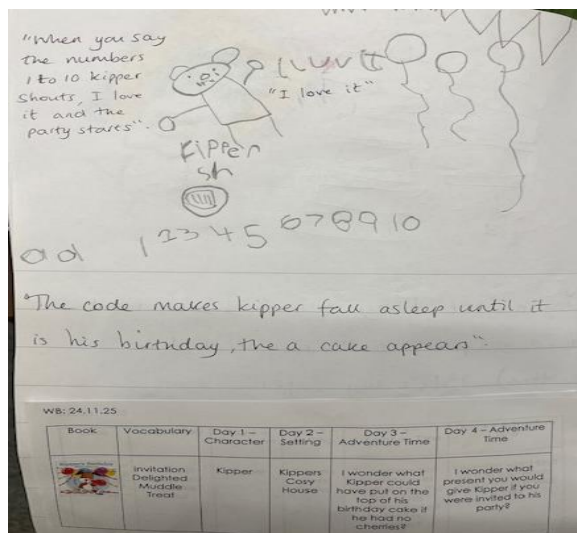 "When you say
the numbers
1 to 10 kipper
Shouts, I love
it and the
party starts".
I luv it
"I love it"
Kipper
sh
1 2 3 4 5 6 7 8 9 10
ad
"The code makes kipper fall asleep until it
is his birthday, the a cake appears".
WB: 24.11.25
Book Vocabulary Day 1 – Character Day 2 – Setting Day 3 – Adventure Time Day 4 – Adventure Time
Invitation
Delighted
Muddle
Treat
Kipper
Kippers
Cosy
House
I wonder what
Kipper could
have put on the
top of his
birthday cake if
he had no
cherries?
I wonder what
present you would
give Kipper if you
were invited to his
party?